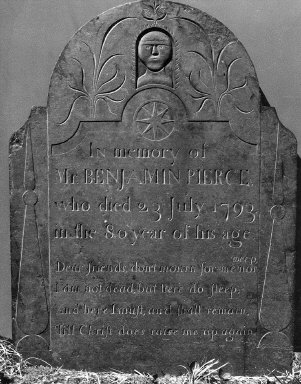 In memory of
Mr. BENJAMIN PIERCE,
who died 23 July 1793,
in the 80 year of his age
weep
Dear friends dont mourn for me nor
I am not dead, but here do sleep;
and here I must, and shall remain,
Till Christ does raise me up again.